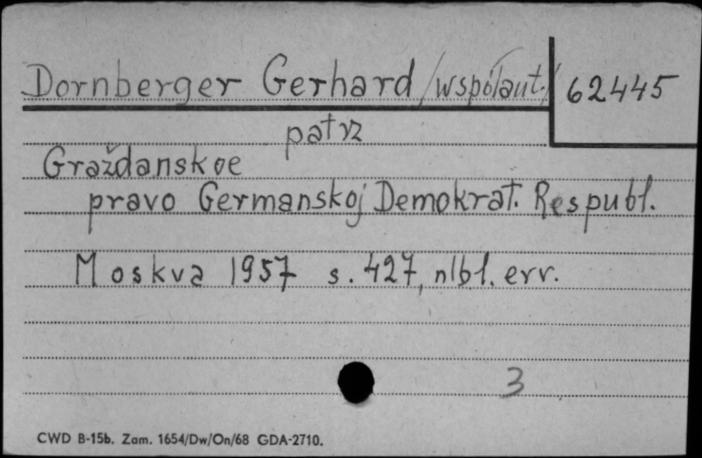 Dornberger Gerhard /współaut./ 62445
patrz
Graždanskoe
pravo Germanskoj Demokrat. Respubl.
Moskva 1957 s. 427, nlbl. err.
3
CWD B-15b. Zam. 1654/Dw/On/68 GDA-2710.